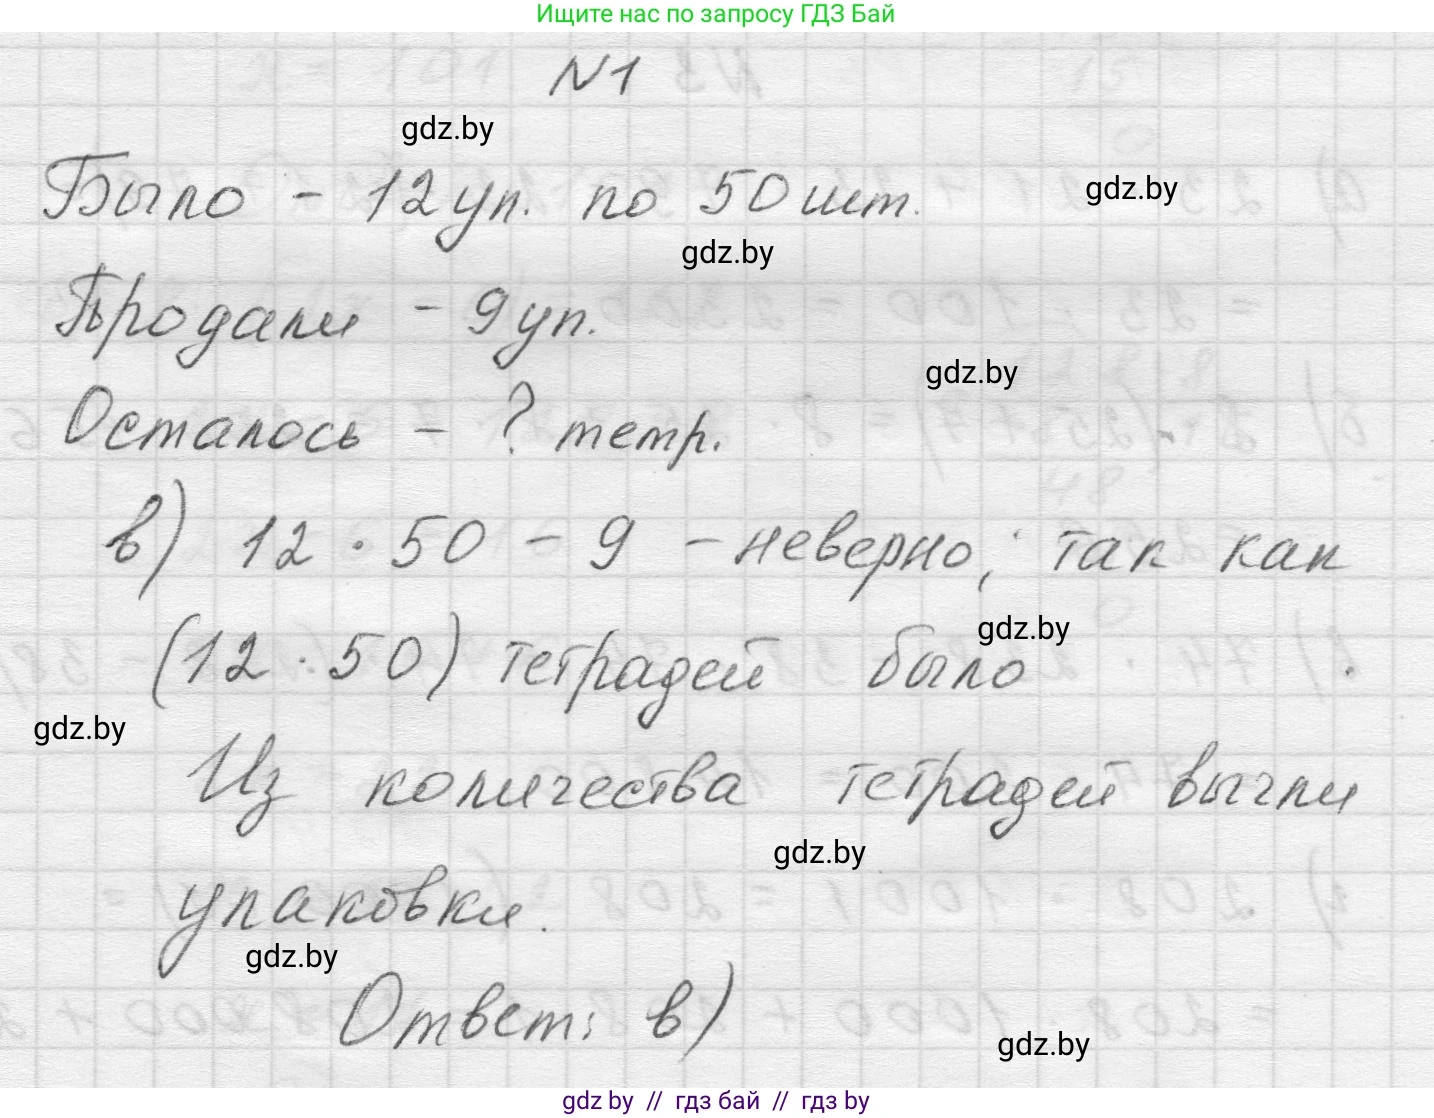 Ищите нас по запросу ГДЗ Бай
N1
gdz.by
Было - 12 уп. по 50 шт.
gdz.by
gdz.by
Продали - 9 уп.
gdz.by
Осталось - ? тетр.
в) 12 · 50 - 9 - неверно, так как
gdz.by
(12 · 50) тетрадей было
gdz.by
Из количества тетрадей вычли
gdz.by
упаковки.
gdz.by
Ответ: в)
gdz.by
gdz by // гдз бай // гдз by